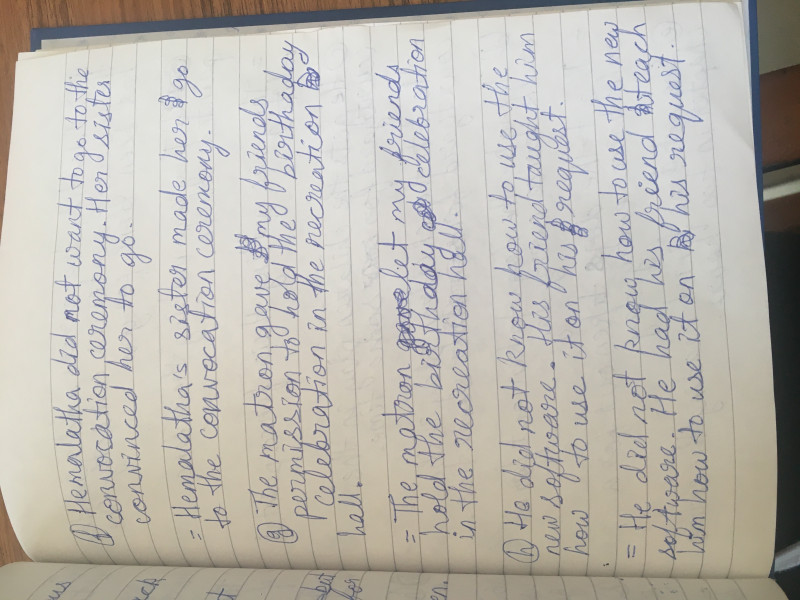 f) Hemalatha did not want to go to the
convocation ceremony. Her sister
convinced her to go.
= Hemalatha's sister made her go
to the convocation ceremony.
g) The matron gave my friends
permission to hold the birthaday
celebration in the recreation
hell.
= The matron let my friends
hold the birthaday celebration
in the recreation hell.
h) He did not know how to use the
new software. His friend taught him
how to use it on his request.
= He did not know how to use the new
software. He had his friend teach
him how to use it on his request.